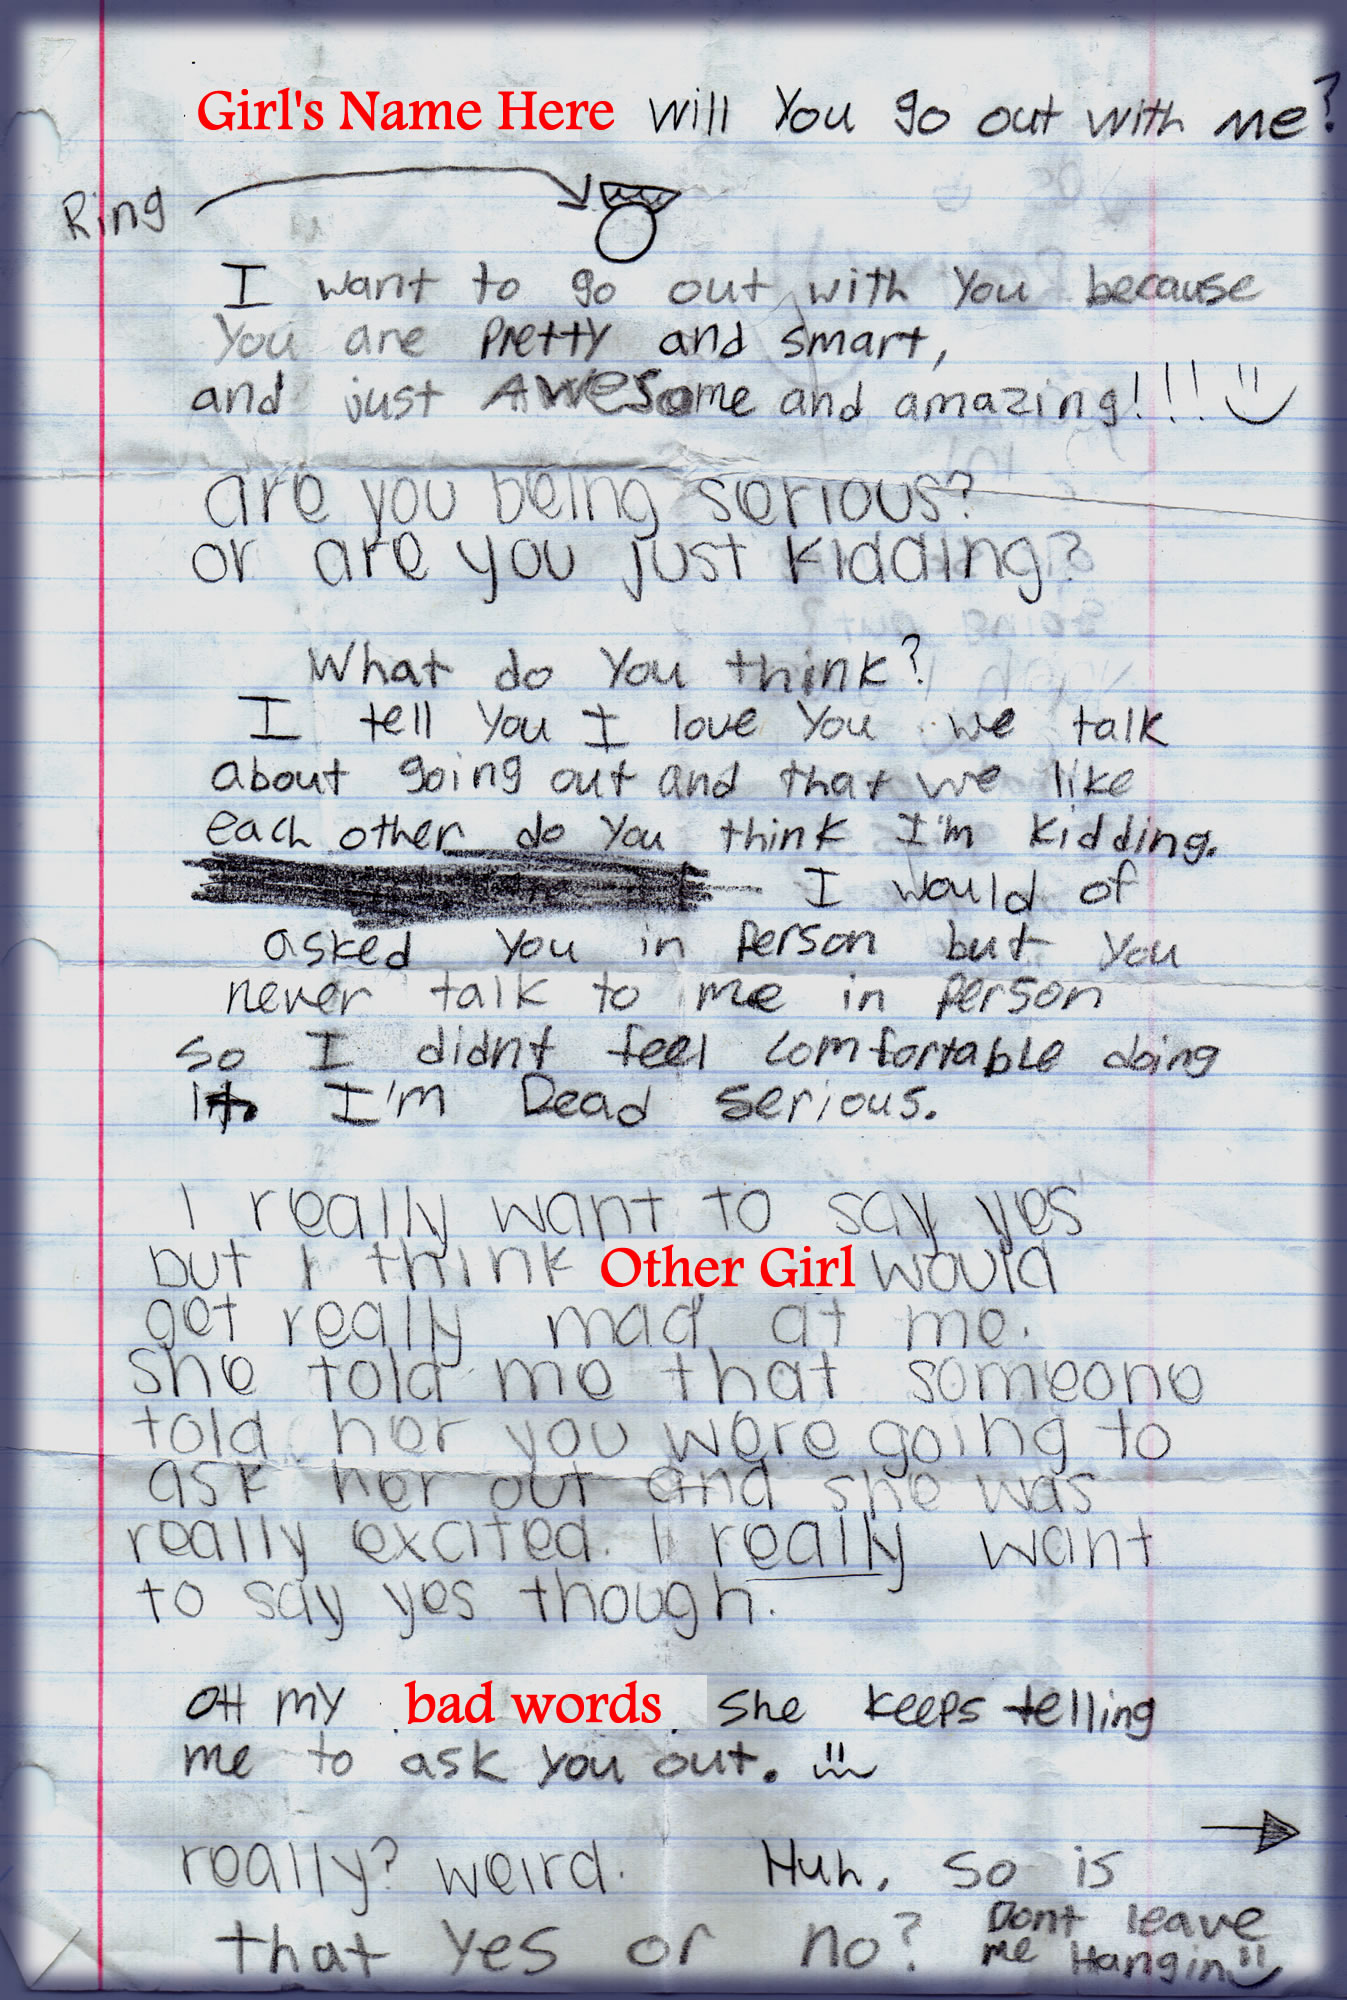 Girl's Name Here will You go out with me?
Ring
I want to go out with You because
You are Pretty and smart,
and just Awesome and amazing!!!
are you being serious?
or are you just kidding?
What do You think?
I tell You I love You we talk
about going out and that we like
each other do You think I'm kidding.
I would of
asked You in Person but You
never talk to me in Person
so I didnt feel comfortable doing
it I'm Dead serious.
I really want to say yes
but I think Other Girl would
get really mad at me.
She told me that someone
told her you were going to
ask her out and she was
really excited. I really want
to say yes though.
OH MY bad words She keeps telling
me to ask You out.
really? weird. Huh. So is
that Yes or no? Dont leave
me Hangin